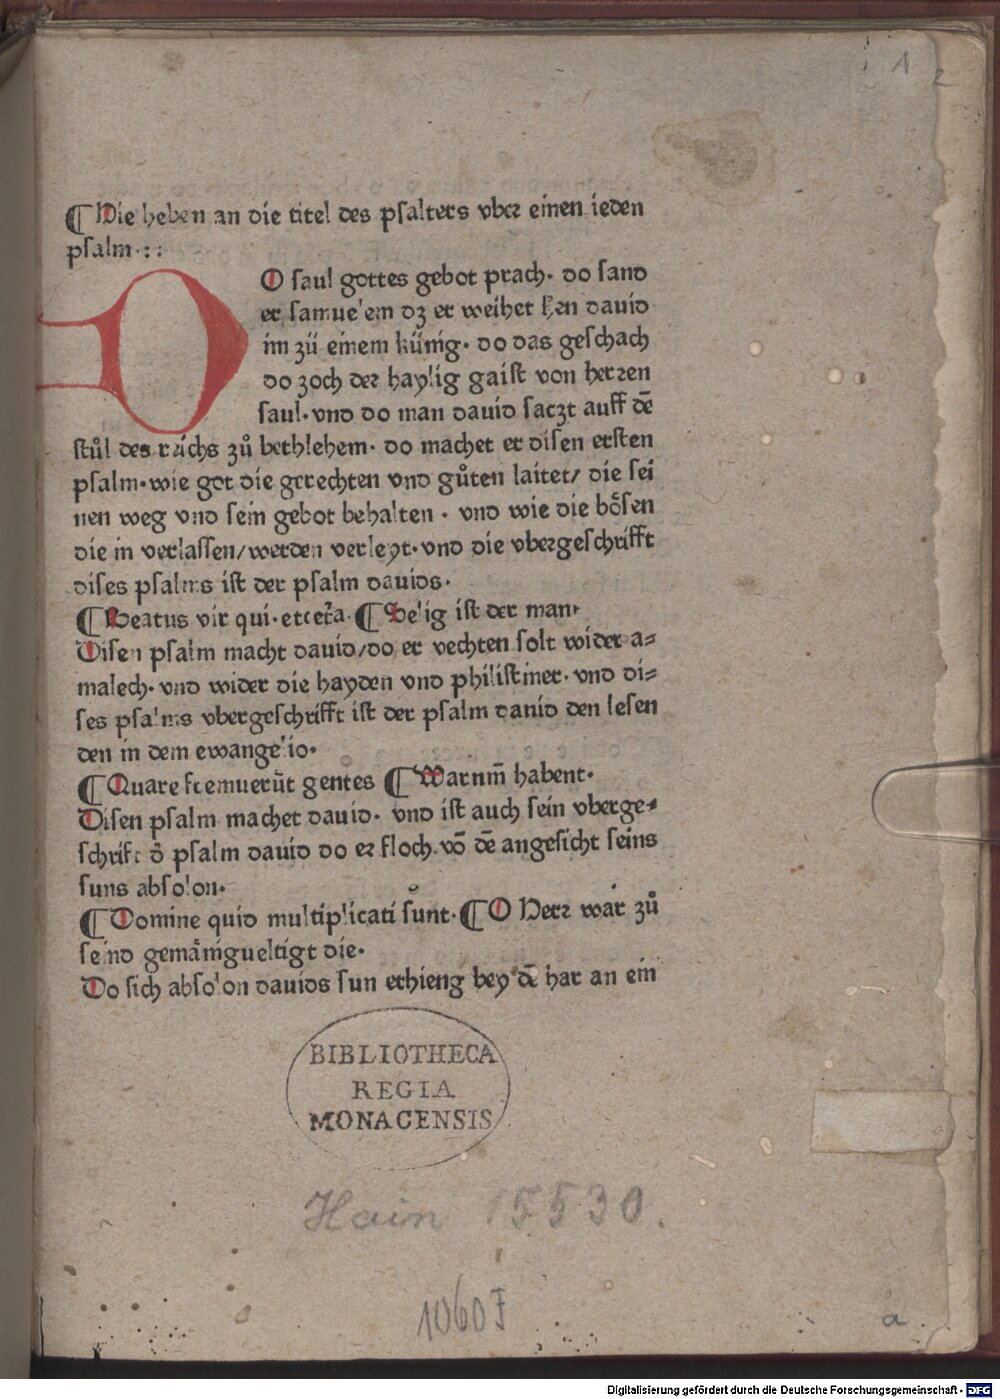 1
2
¶ Hie heben an die titel des psalters vber einen ieden
psalm.::
DO saul gottes gebot prach. do sand
er samuelem dz er weihet den dauid
im zů einem künig. do das geschach
do zoch der haylig gaist von herren
saul. vnd do man dauid saczt auff dē
stůl des reichs zů bethlehem. do machet er disen ersten
psalm. wie got die gerechten vnd gůten laitet/ die sei
nen weg vnd sein gebot behalten. vnd wie die bösen
die in verlassen/werden verleyt. vnd die vbergeschrifft
dises psalms ist der psalm dauids.
¶ Beatus vir qui. etcetr̃a. ¶ Selig ist der man.
Disen psalm macht dauid/do er vechten solt wider a=
malech. vnd wider die hayden vnd philistiner. vnd di=
ses psalms vbergeschrifft ist der psalm dauid den lesen
den in dem ewangelio.
¶ Quare fremuerūt gentes ¶ Warum̄ habent.
Disen psalm machet dauid. vnd ist auch sein vberge=
schrift d̄ psalm dauid do er floch. vō dē angesicht seins
suns absolon.
¶ Domine quid multiplicati sunt. ¶ O Herr war zů
seind gemänigueltigt die.
Do sich absolon dauids sun erhieng bey dē har an ein
BIBLIOTHECA
REGIA
MONACENSIS
Hain 15530.
1060 F
a
Digitalisierung gefördert durch die Deutsche Forschungsgemeinschaft - DFG